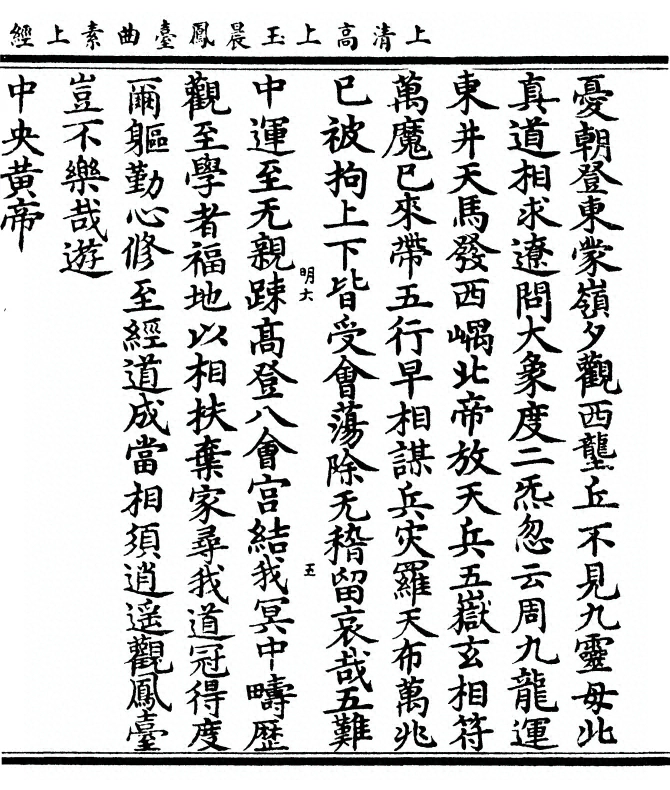 上清高上玉晨鳳臺曲素上經
憂朝登東蒙嶺夕觀西壟丘不見九靈毋北
真道相求遼問大象度二炁忽云周九龍運
東井天馬發西嵎北帝放天兵五嶽玄相符
萬魔已來帶五行早相謀兵灾羅天布萬兆
已被拘上下皆受會蕩除无稽留哀哉五難
明大
中運至无親踈高登八會宮結我冥中疇歷
觀至學者福地以相扶棄家尋我道冠得度
爾軀勤心修至經道成當相須逍遥觀鳳臺
豈不樂哉遊
中央黃帝